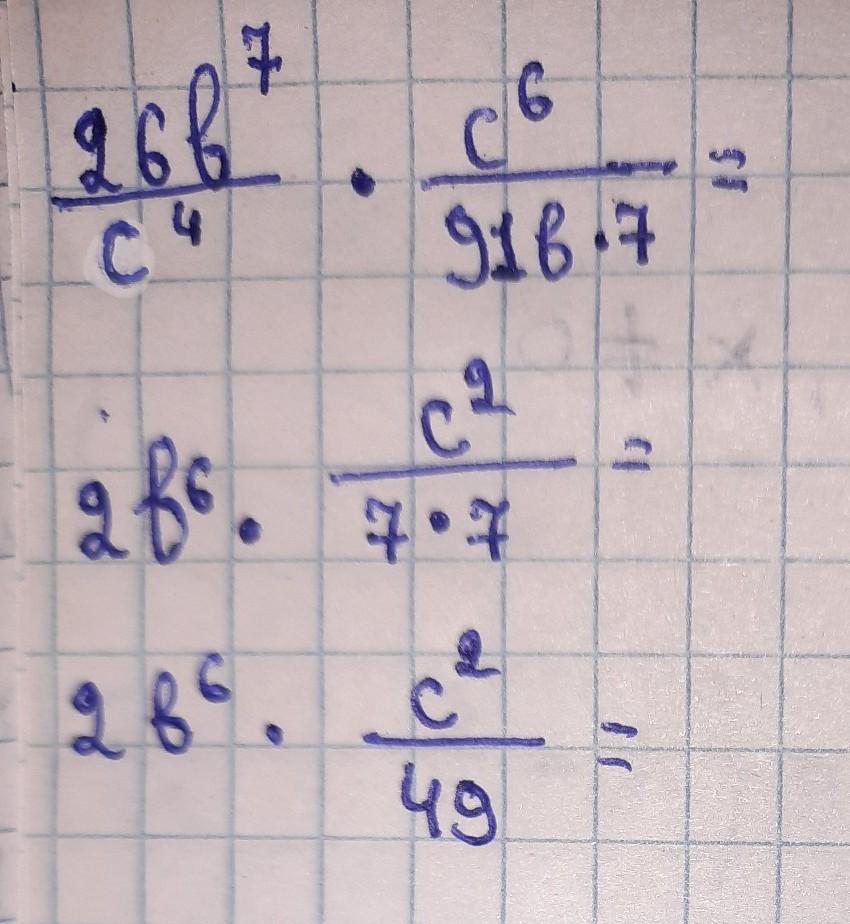 26в⁷/c⁴ · c⁶/91в·7 =
2в⁶ · c²/7·7 =
2в⁶ · c²/49 =